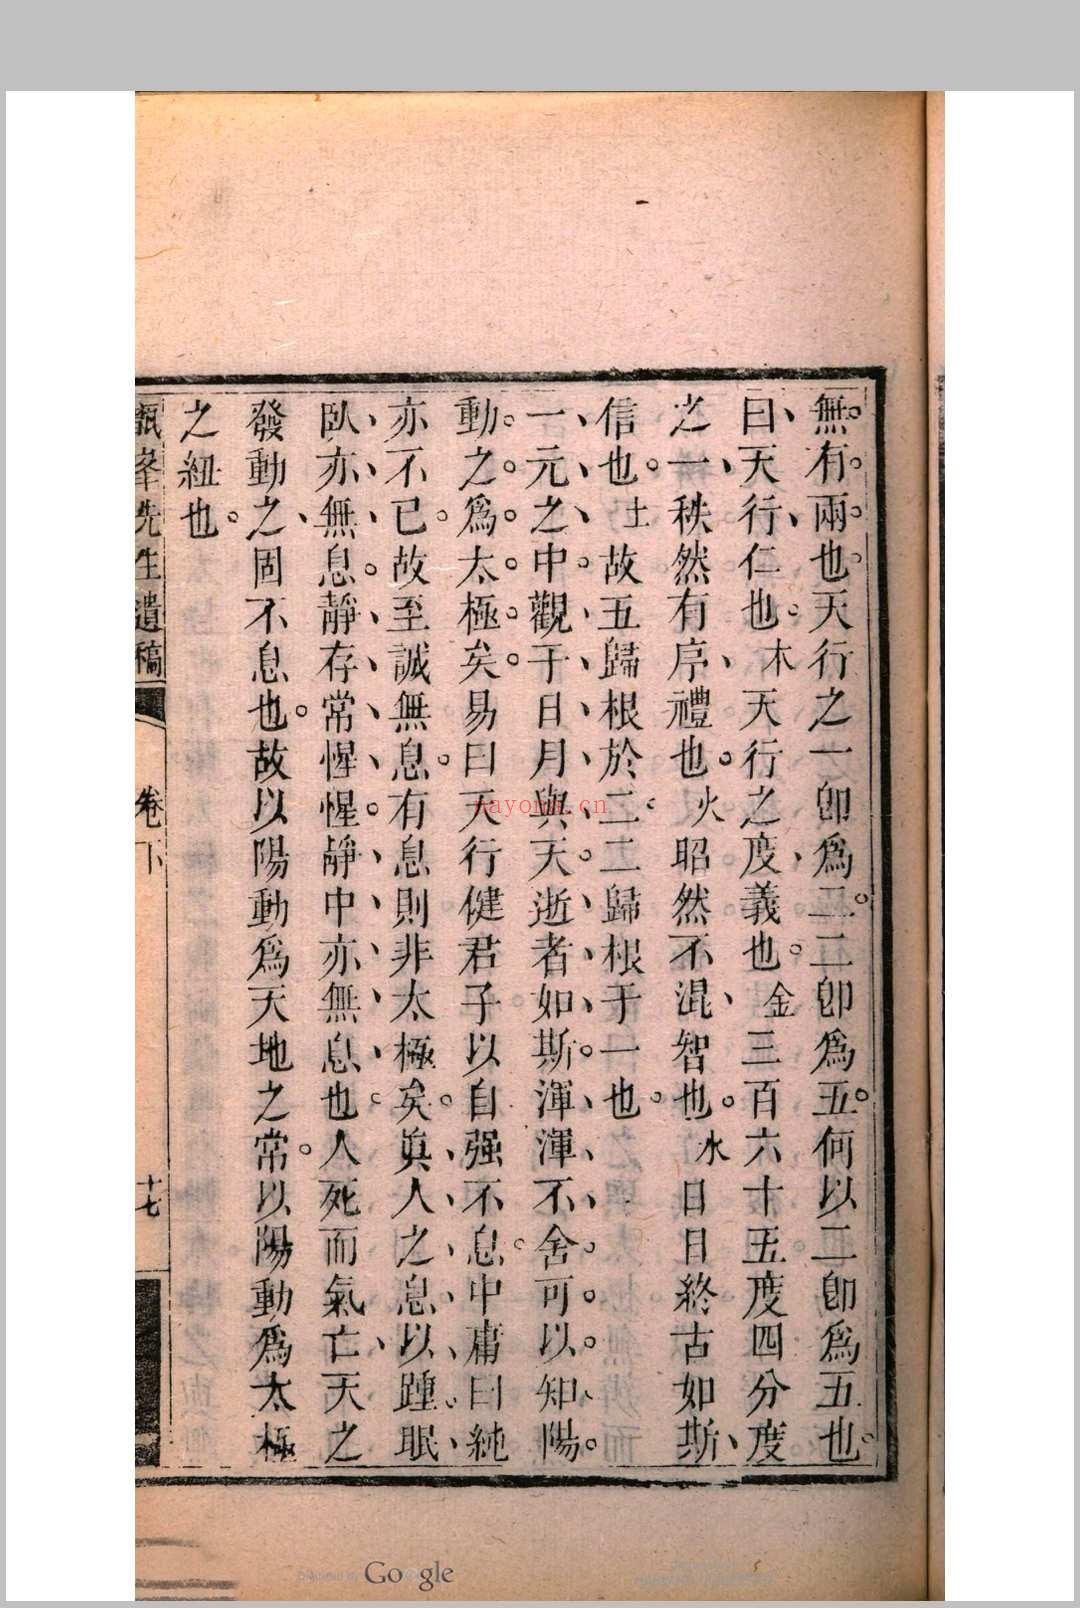 無有兩也天行之一卽爲二二卽爲五何以二卽爲五也
曰天行仁也木天行之度義也金三百六十五度四分度
之一秩然有序禮也火昭然不混智也水日日終古如斯
信也土故五歸根於二二歸根于一也
一元之中觀于日月與天逝者如斯渾渾不舍可以知陽
動之爲太極矣易曰天行健君子以自强不息中庸曰純
亦不已故至誠無息有息則非太極矣眞人之息以踵眠
臥亦無息靜存常惺惺靜中亦無息也人死而氣亡天之
發動之固不息也故以陽動爲天地之常以陽動爲太極
之紐也
峯先生遺稿
卷下
十七
nayona.cn
Digitized by Google